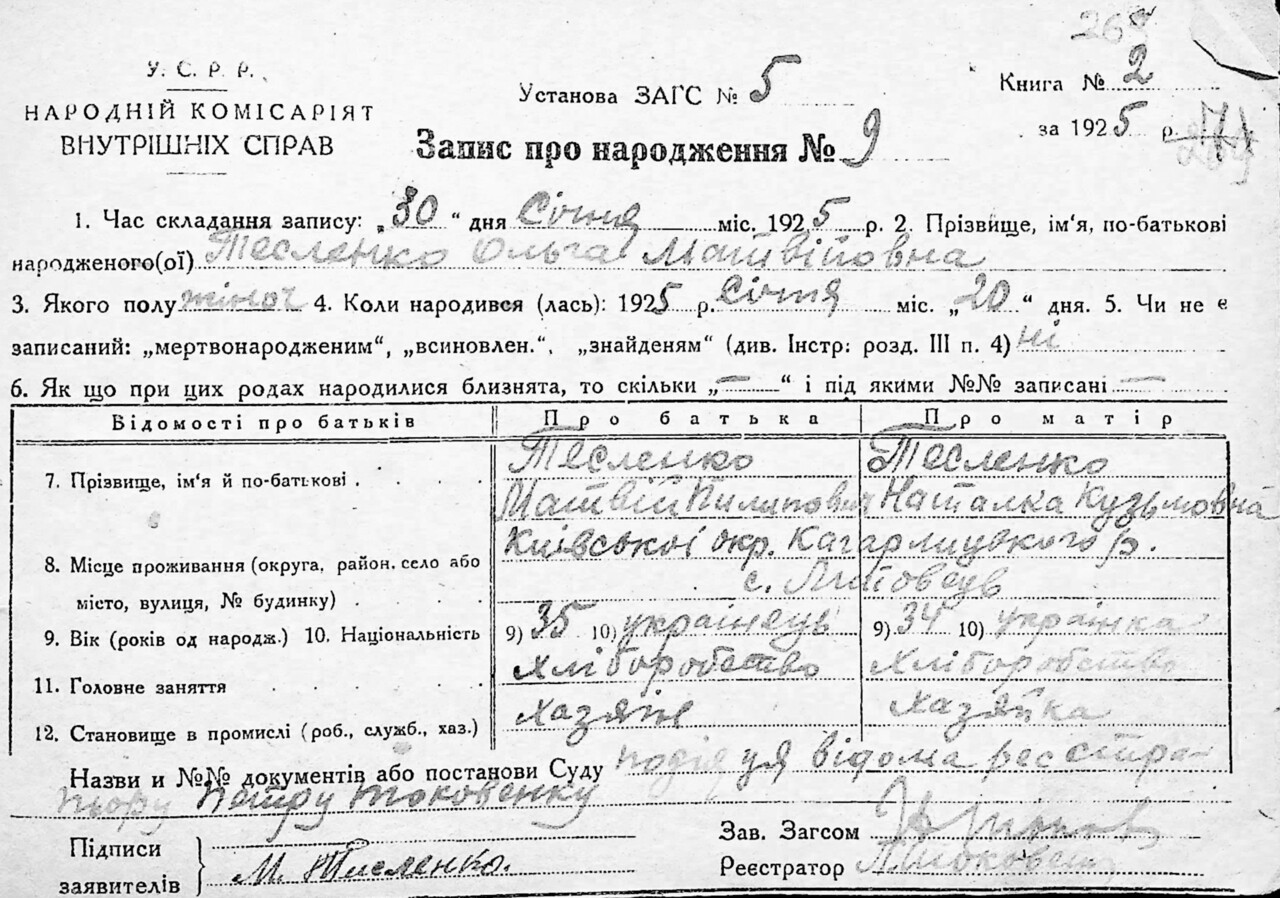 У. С. Р. Р.
НАРОДНІЙ КОМІСАРІЯТ
ВНУТРІШНІХ СПРАВ
Установа ЗАГС № 5
Книга № 2
за 1925 р.
Запис про народження № 9
1. Час складання запису: „30“ дня Січня міс. 1925 р. 2. Прізвище, ім'я, по-батькові
народженого(ої) Тесленко Ольга Матвійовна
3. Якого полу жіноч 4. Коли народився (лась): 1925 р. Січня міс. „20“ дня. 5. Чи не є
записаний: „мертвонародженим“, „всиновлен.“, „знайденям“ (див. Інстр: розд. III п. 4) ні
6. Як що при цих родах народилися близнята, то скільки „—“ і під якими №№ записані —
Відомості про батьків Про батька Про матір
7. Прізвище, ім'я й по-батькові . . . Тесленко Тесленко
Матвій Пилипович Наталка Кузьмовна
8. Місце проживання (округа, район, село або Київської окр. Кагарлицького р.
місто, вулиця, № будинку) . . . . с. Липовець
9. Вік (років од народж.) 10. Національність 9) 35 10) українець 9) 34 10) українка
11. Головне заняття . . . . . хліборобство хліборобство
12. Становище в промислі (роб., служб., хаз.) хазяїн хазяйка
Назви и №№ документів або постанови Суду подія ця відома реєстра-
тору Петру Токовенку
Підписи
заявителів
М. Тисленко.
Зав. Загсом
Реєстратор